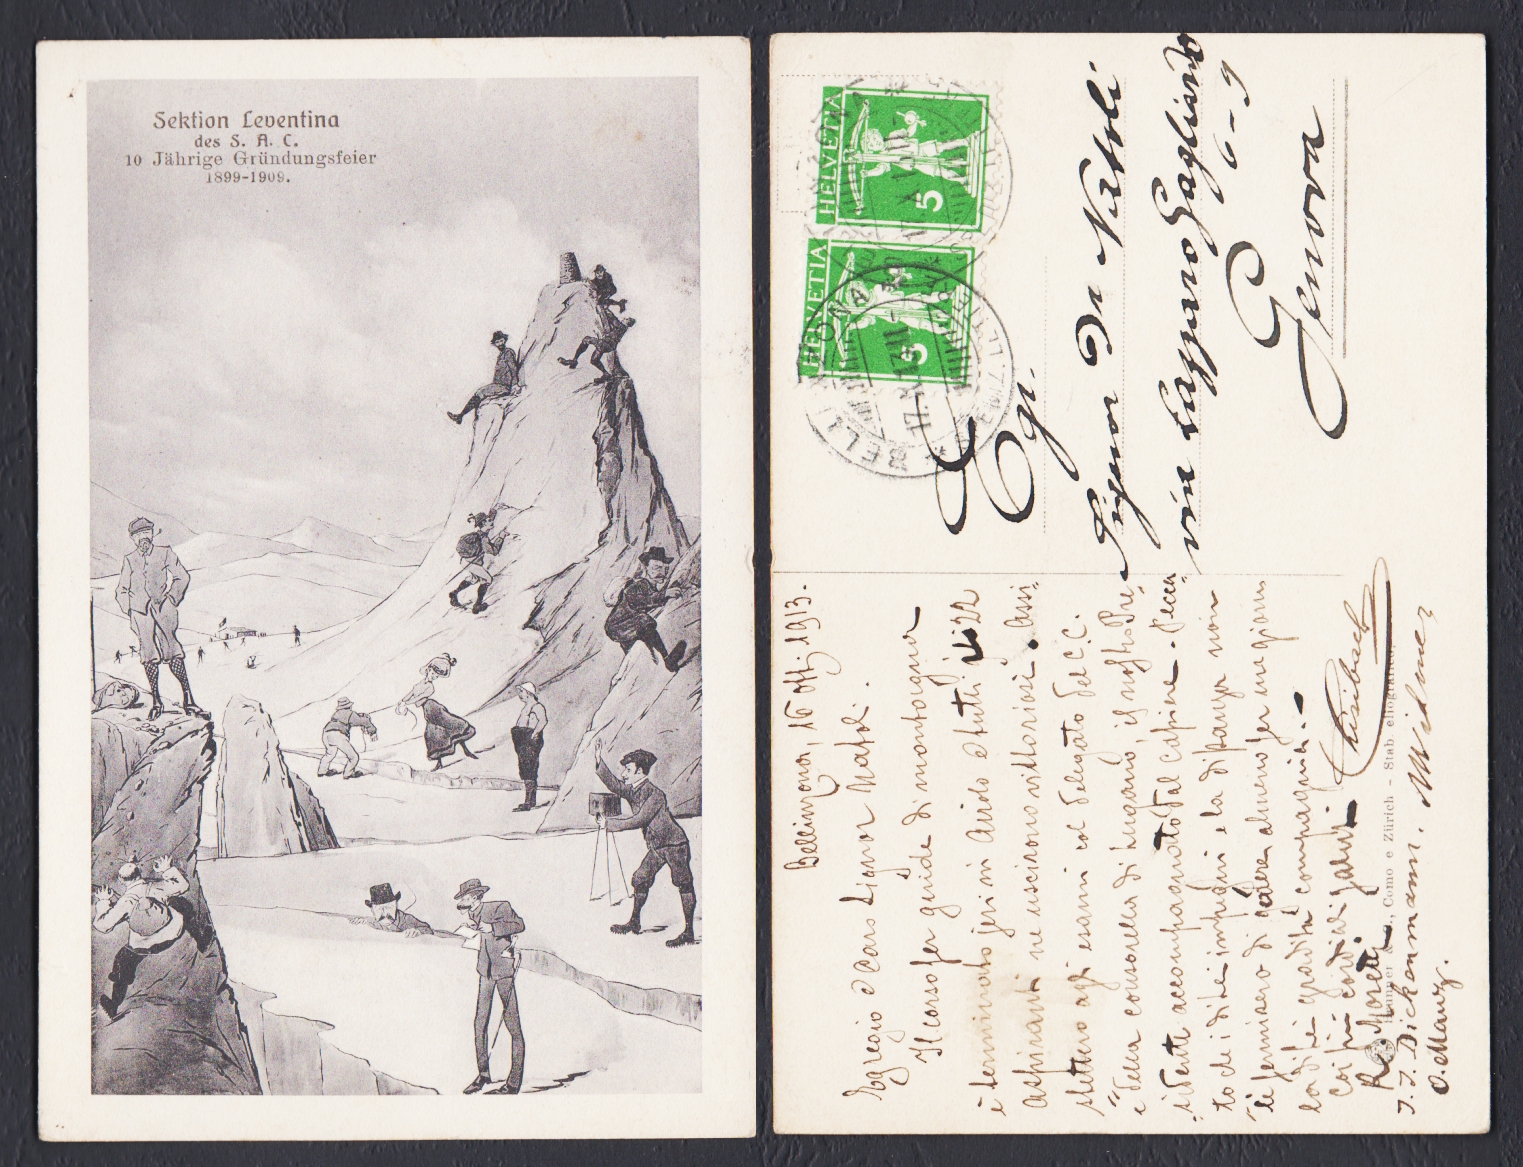 Sektion Leventina
des S. A. C.
10 Jährige Gründungsfeier
1899-1909.
HELVETIA
5
HELVETIA
5
BELLINZONA
17.X.13
Egr.
Signor Dr Natoli
via Lapparo Gagliardo
6-9
Genova
Bellinzona, 16 ott. 1913.
Egregio e Caro Signor Natoli.
Il corso per guide di montagna
è terminato jeri in Airolo e tutti i 22
aspiranti ne uscirono vittoriosi. Assi-
stettero agli esami col delegato del C.C.
e della consorella di Lugano, il nostro Pre-
sidente accompagnato dal capiere. Pecca-
to che i di Lei impegni e la distanza non
le permisero di godere almeno per un giorno
la di Lei gradita compagnia.
Coi più cordiali saluti
R. Moretti
J. J. Dickenmann.
O. Manz.
Como e Zürich - Stab. eliografico